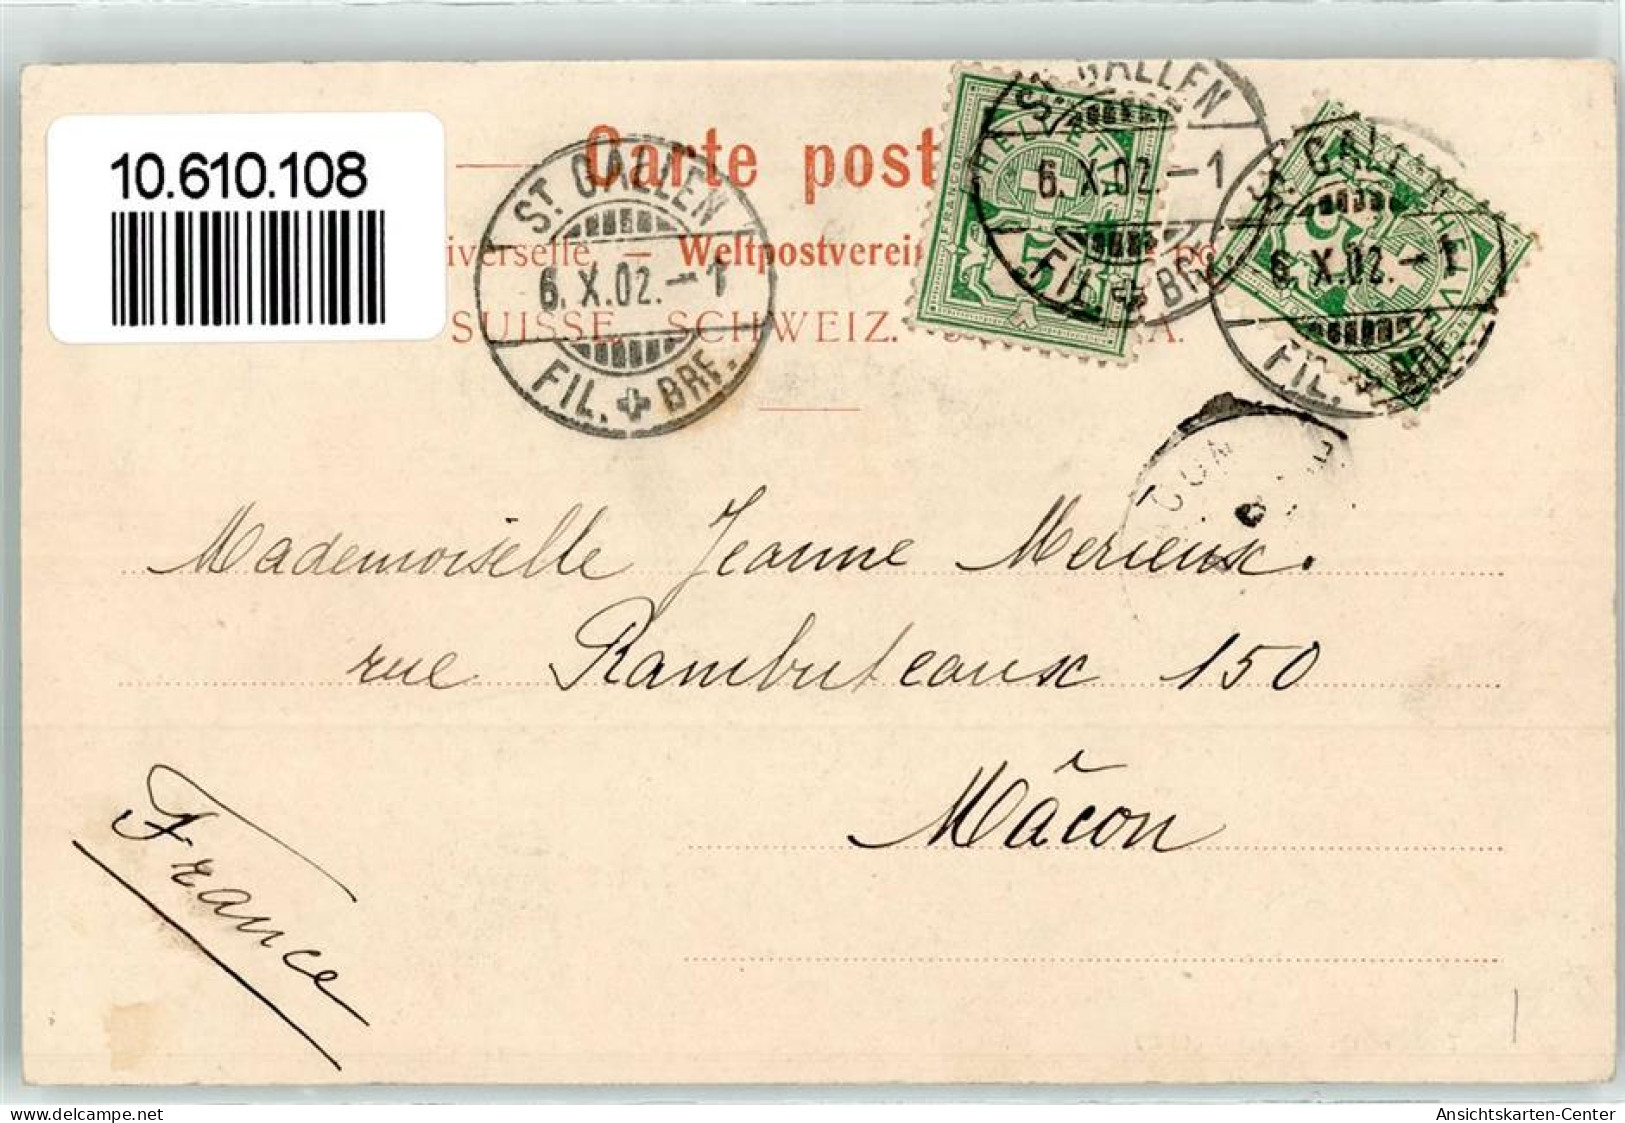 10.610.108
Carte post
iverselle. — Weltpostverein
SUISSE. SCHWEIZ. S A.
ST. GALLEN
6.X.02.-1
FIL. + BRF.
ST. GALLEN
6.X.02.-1
FIL. + BRF.
ST. GALLEN
6.X.02.-1
FIL. + BRF.
HELVETIA
5
HELV
5
Mademoiselle Jeanne Merieux.
rue Rambuteaux 150
Mâcon
France
delcampe.net
Ansichtskarten-Center